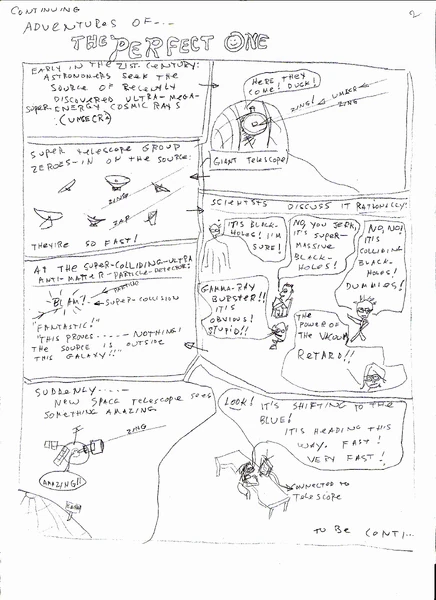 CONTINUING
ADVENTURES OF....
2
THE PERFECT ONE
EARLY IN THE 21ST. CENTURY:
ASTRONOMERS SEEK THE
SOURCE OF RECENTLY
DISCOVERED ULTRA-MEGA-
SUPER-ENERGY COSMIC RAYS
(UMECRA)
HERE THEY
COME! DUCK!
ZING!
UMECR
ZING
GIANT TELESCOPE
SUPER TELESCOPE GROUP
ZEROES-IN ON THE SOURCE:
ZING
ZAP
THEY'RE SO FAST!
SCIENTISTS DISCUSS IT RATIONALLY:
IT'S BLACK-
HOLES! I'M
SURE!
NO, YOU JERK,
IT'S SUPER-
MASSIVE
BLACK-
HOLES!
NO, NO!
IT'S
COLLIDING
BLACK-
HOLES!
DUMBLES!
GAMMA-RAY
BURSTER!!
IT'S
OBVIOUS!
STUPID!!
THE
POWER OF
THE VACUUM
RETARD!!
AT THE SUPER-COLLIDING-ULTRA
ANTI-MATTER-PARTICLE-DETECTOR:
BLAM!
SUPER-COLLISION
"FANTASTIC!"
"THIS PROVES..... NOTHING!
THE SOURCE IS OUTSIDE
THIS GALAXY!!"
SUDDENLY....
NEW SPACE TELESCOPE SEES
SOMETHING AMAZING
ZING
AMAZING!!
LOOK! IT'S SHIFTING TO THE
BLUE!
IT'S HEADING THIS
WAY. FAST!
VERY FAST!
CONNECTED TO
TELESCOPE
TO BE CONTI...